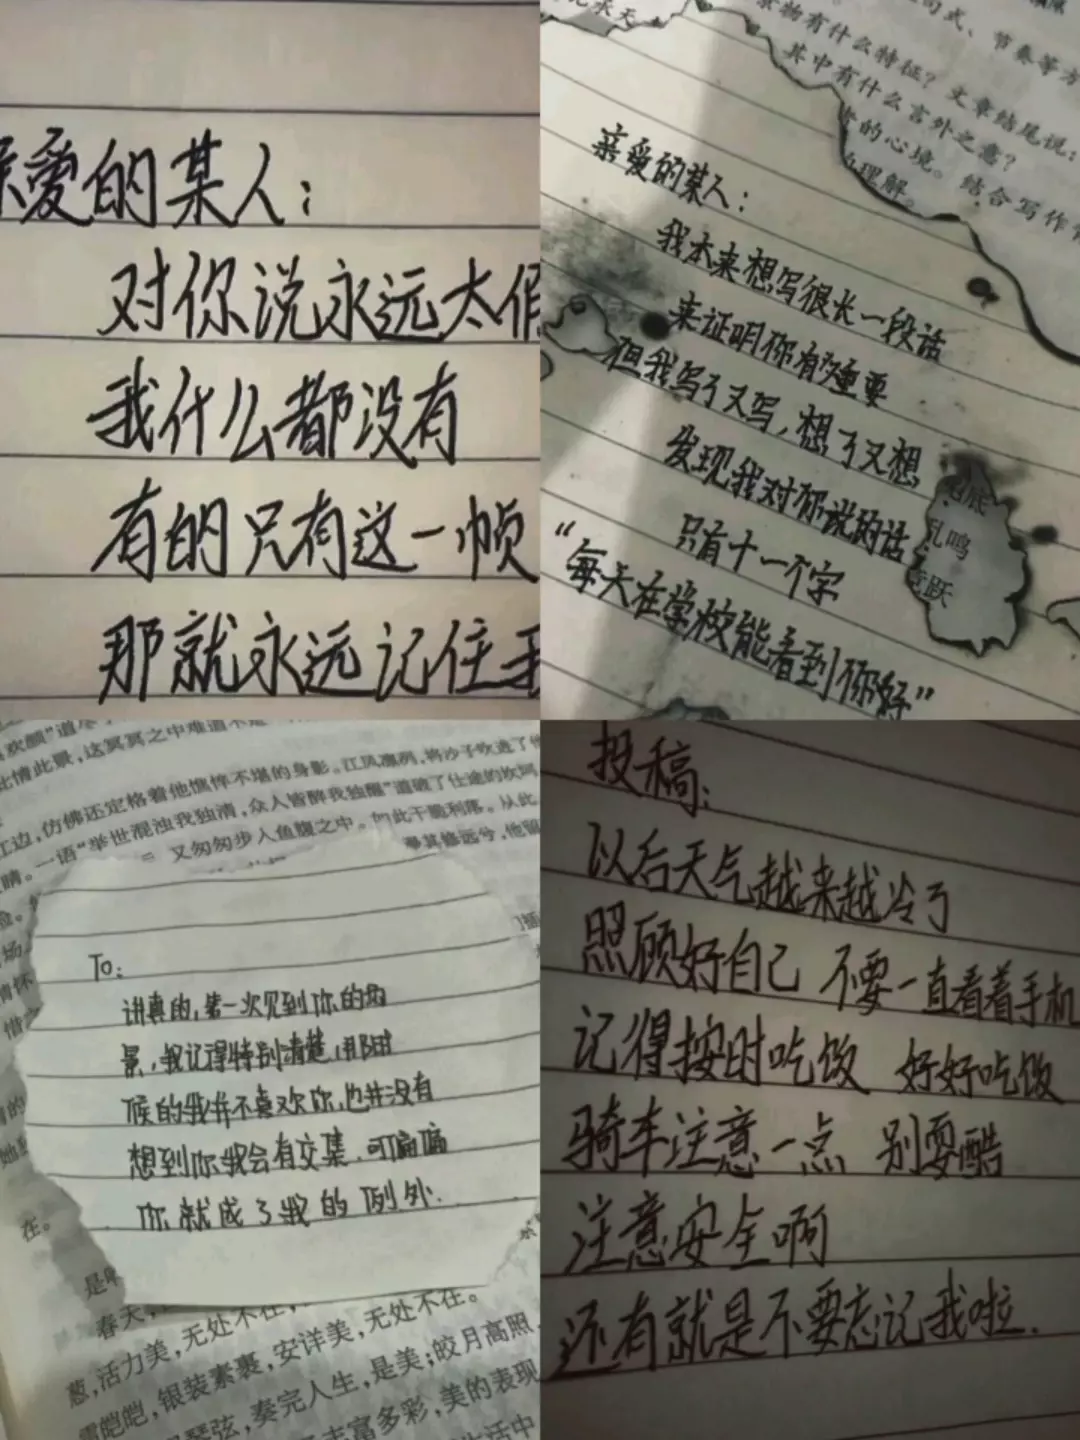 亲爱的某人：
对你说永远太假
我什么都没有
有的只有这一帧
那就永远记住我
句式、节奏等方
景物有什么特征？文章结尾说：
其中有什么言外之意？
的心境。结合写作
理解。
亲爱的某人：
我本来想写很长一段话
来证明你有多重要
但我写了又写，想了又想
发现我对你说的话
只有十一个字
“每天在学校能看到你好”
乱鸣
跃
欢颜”道尽
此情此景，这冥冥之中难道不是
江边，仿佛还定格着他憔悴不堪的身影。江风凛冽，将沙子吹进了他
一语“举世混浊我独清，众人皆醉我独醒”道破了仕途的坎坷
睛。又匆匆步入鱼腹之中。如此干脆利落。从此
其修远兮，他留
To：
讲真的，第一次见到你的场
景，我记得特别清楚，那时
候的我并不喜欢你，也并没有
想到你我会有交集，可偏偏
你就成了我的例外.
在。
是
春天，
葱，活力美，无处不在，
雪皑皑，银装素裹，安详美，无处不在。
琴弦，奏完人生，是美；皎月高照
丰富多彩，美的表现
生活中
投稿：
以后天气越来越冷了
照顾好自己 不要一直看着手机
记得按时吃饭 好好吃饭
骑车注意一点 别耍酷
注意安全啊
还有就是不要忘记我啦.